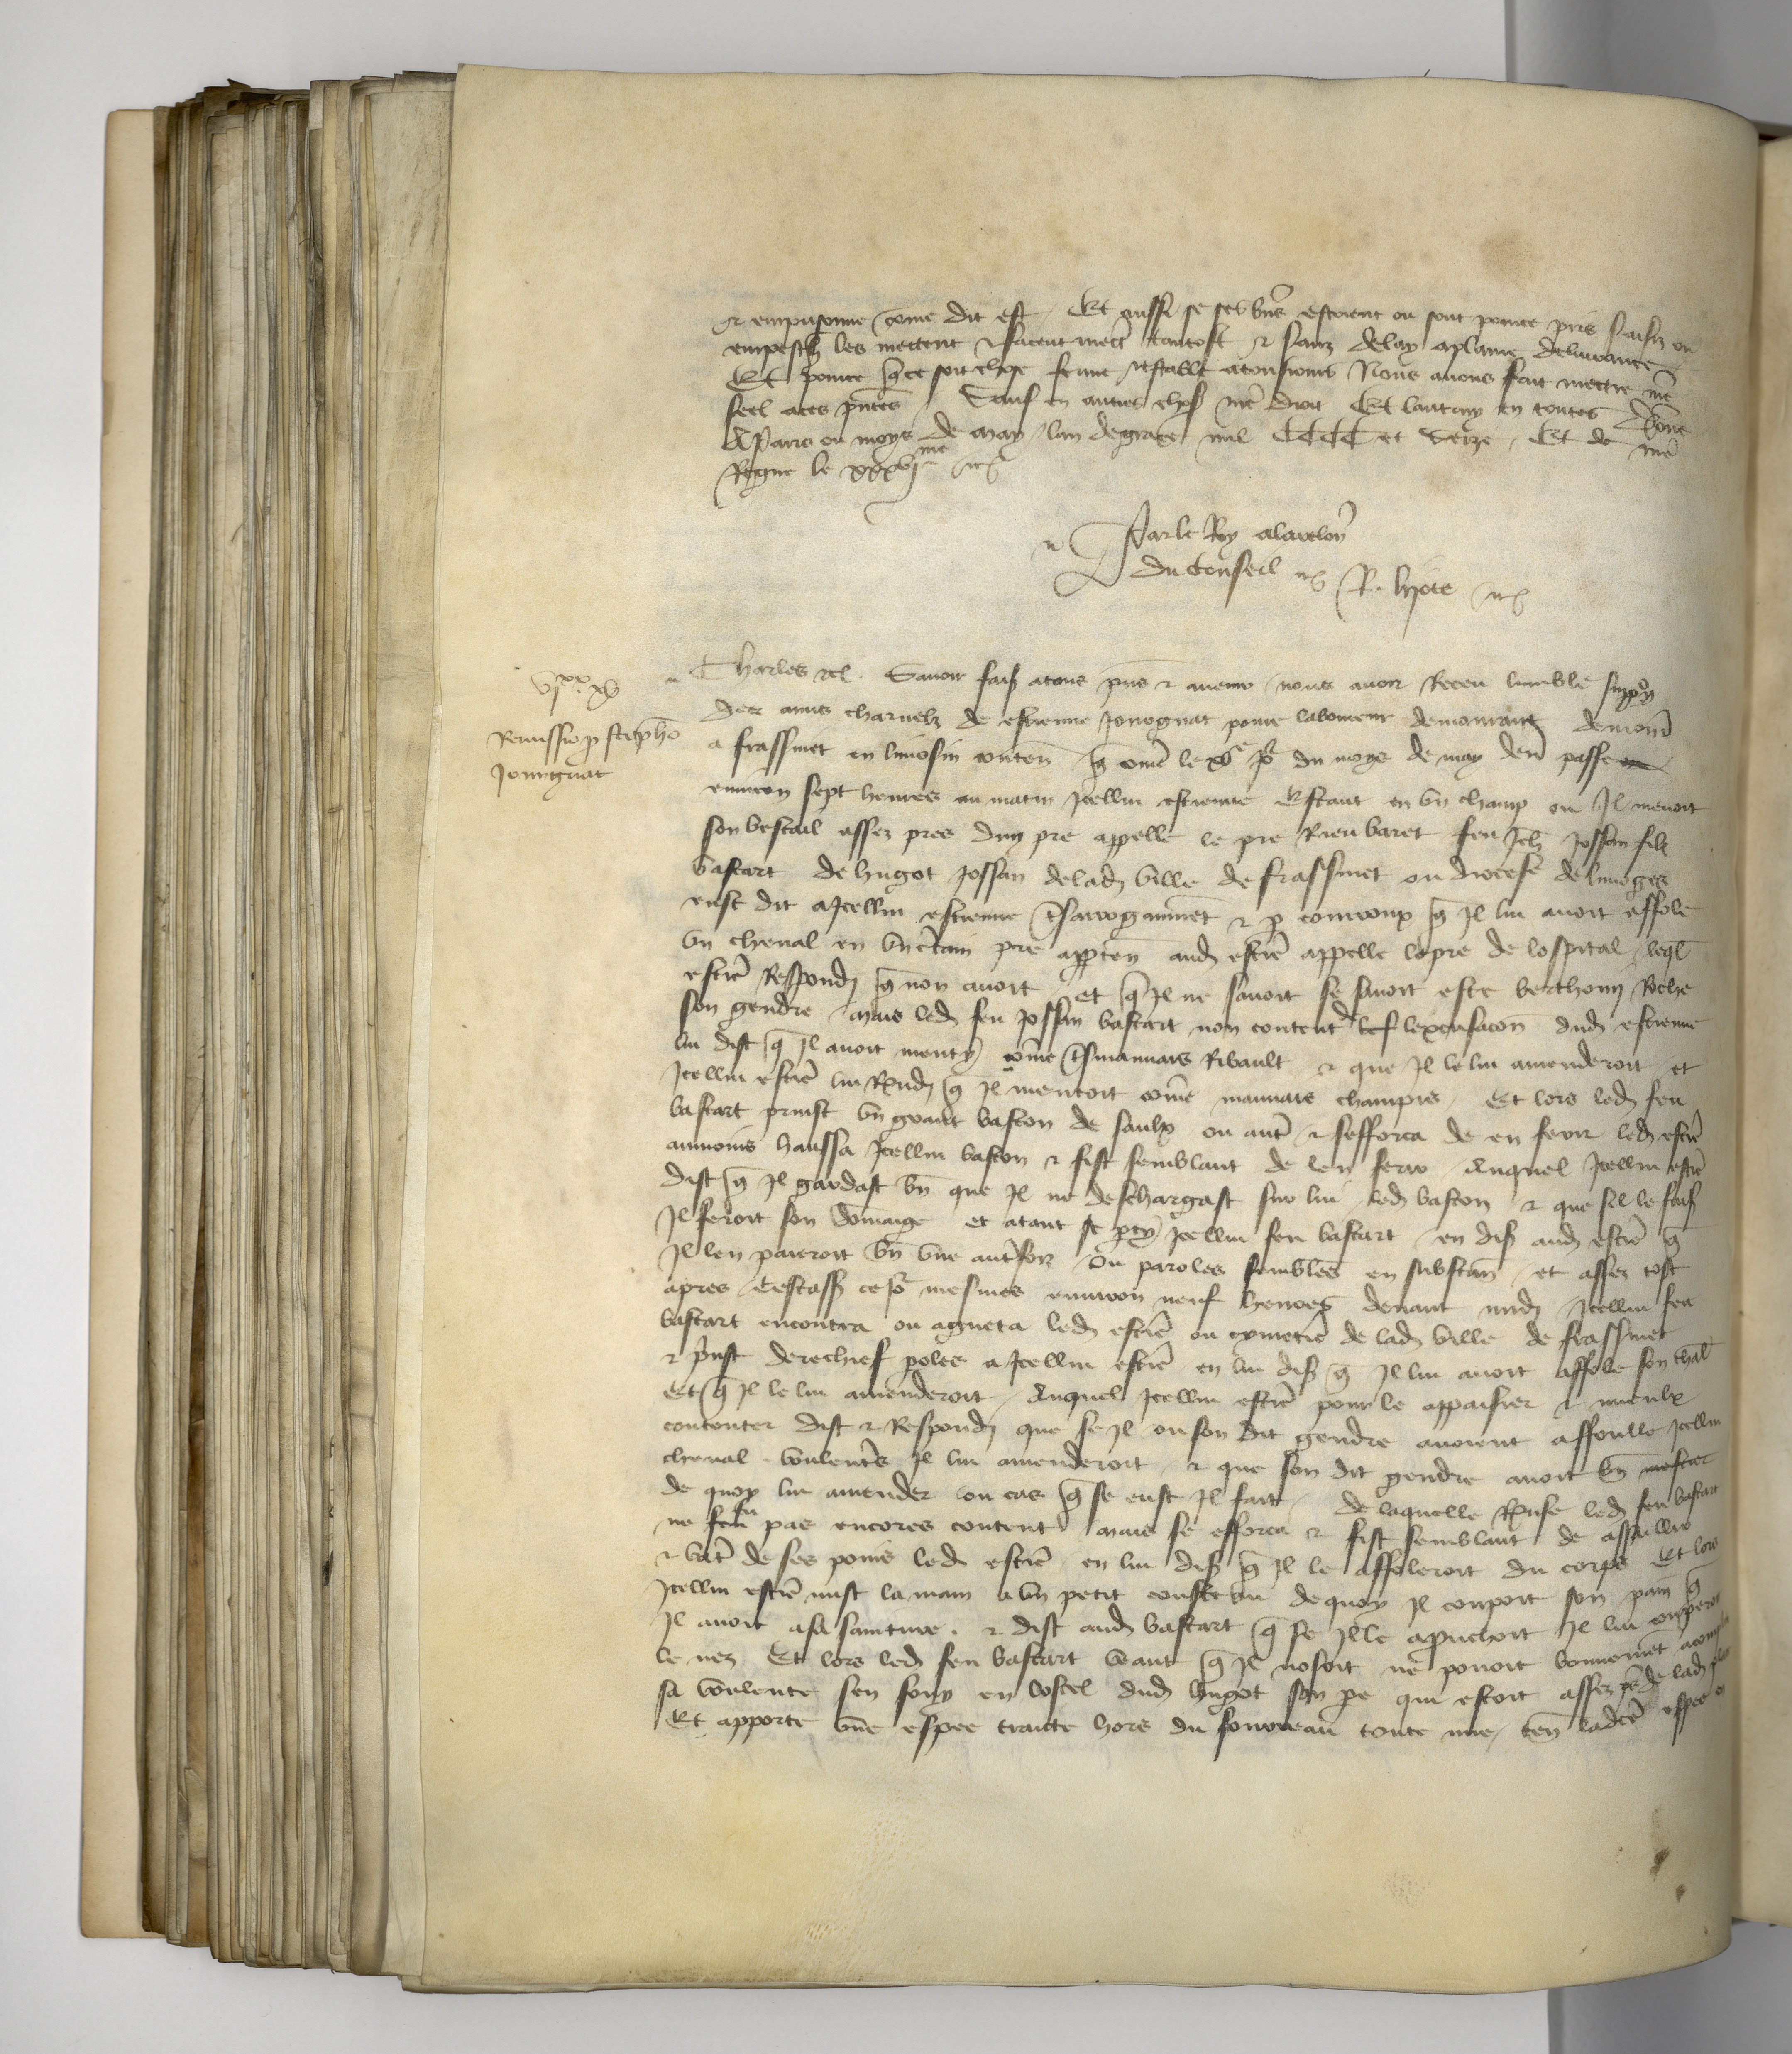 et emprisonne come dit est Et aussi se ses bns estoient ou sont pource pris saisiz ou
empeschz les mettent et facent mectre tantost et sanz delay a plaine delivrance
Et pource que ce soit chose ferme et estable a tousjours Nous avons fait mettre nre
seel a ces pntes Sauf en autres choses nre droit Et lautruy en toutes Donne
A Paris ou moys de may lan de grace mil CCCC et seize Et de nre
Regne le xxxvj me
Par le Roy a la relon
du Conseil R. lijote
vj xx xv
Remissio p Stepho
Jonvgnat
Charles etc. Savoir faiz a tous pns et avenir nous avoir Receu lumble supplon
des amis charnelz de estienne Jonvgnat povre laboureur demourant
a frassinet en limosin conten que come le xve jor du moys de may den passe
environ sept heures au matin Icellui estienne Estant en un champ ou Il menoit
son bestail assez pres dun pre appelle le pre Rieubaret feu Jeh Jossan filz
bastart de hugot Jossan de lad ville de frassinet ou diocese de limoges
eust dit a Icellui estienne et p couroux que Il lui avoit affole
un cheval en un certain pre apparten aud estie appelle le pre de lospital leql
estie Respondi que non avoit et que Il ne savoit se savoit este berthomi Roche
son gendre mais led feu Jossan bastart non content de lexcusacon dud estienne
lui dist que Il avoit menty come mauvais Ribault et que Il le lui amenderoit et
Icellui estie lui Rndi que Il mentoit come mauvais champis Et lors led feu
bastart prinst un grant baston de saulx ou autre et sefforca de en ferir led estie
aumoins haussa Icellui baston et fist semblant de len ferir Auquel Icellui estie
dist que Il gardast bn que Il ne deschargast sur lui led baston et que sil le fais
Il feroit son domaige et atant se pty Icellui feu bastart en dist aud estie que
Il len paieroit bn une autre foiz Ou paroles semblees en substan et assez tost
apres Cestass ce jor mesmes environ neuf heures devant midi Icellui feu
bastart encontra ou agueta led estie ou cymetie de lad ville de frassinet
et prinst derechief poles a Icellui estie en lui dis que Il lui avoit affole son chal
Et que Il le lui amenderoit Auquel Icellui estie pour le appaisier et mieulx
contenter dist et Respondi que se Il ou son dit gendre avoient affoulle Icellui
cheval voulenties Il lui amenderoit et que son dit gendre avoit bn
de quoy lui amender ou cas que se eust Il fait De laquelle Rnse led feu bastart
ne fu pas encores content mais se efforca et fist semblant de assaillir
et batre de ses poins led estie en lui dis que Il le affoleroit du corps Et lors
Icellui estie mist la main a un petit coustel de quoy Il coupoit son pain que
Il avoit a sa sainture et dist aud bastart que se Il le aprochoit Il lui couperoit
le nez Et lors led feu bastart veant que Il nosoit ne povoit bonnemet
sa voulente sen fouy en lostel dud hugot son pe qui estoit assez pres de lad
Et apporte une espee traicte hors du fourreau toute nue ten ladce espee